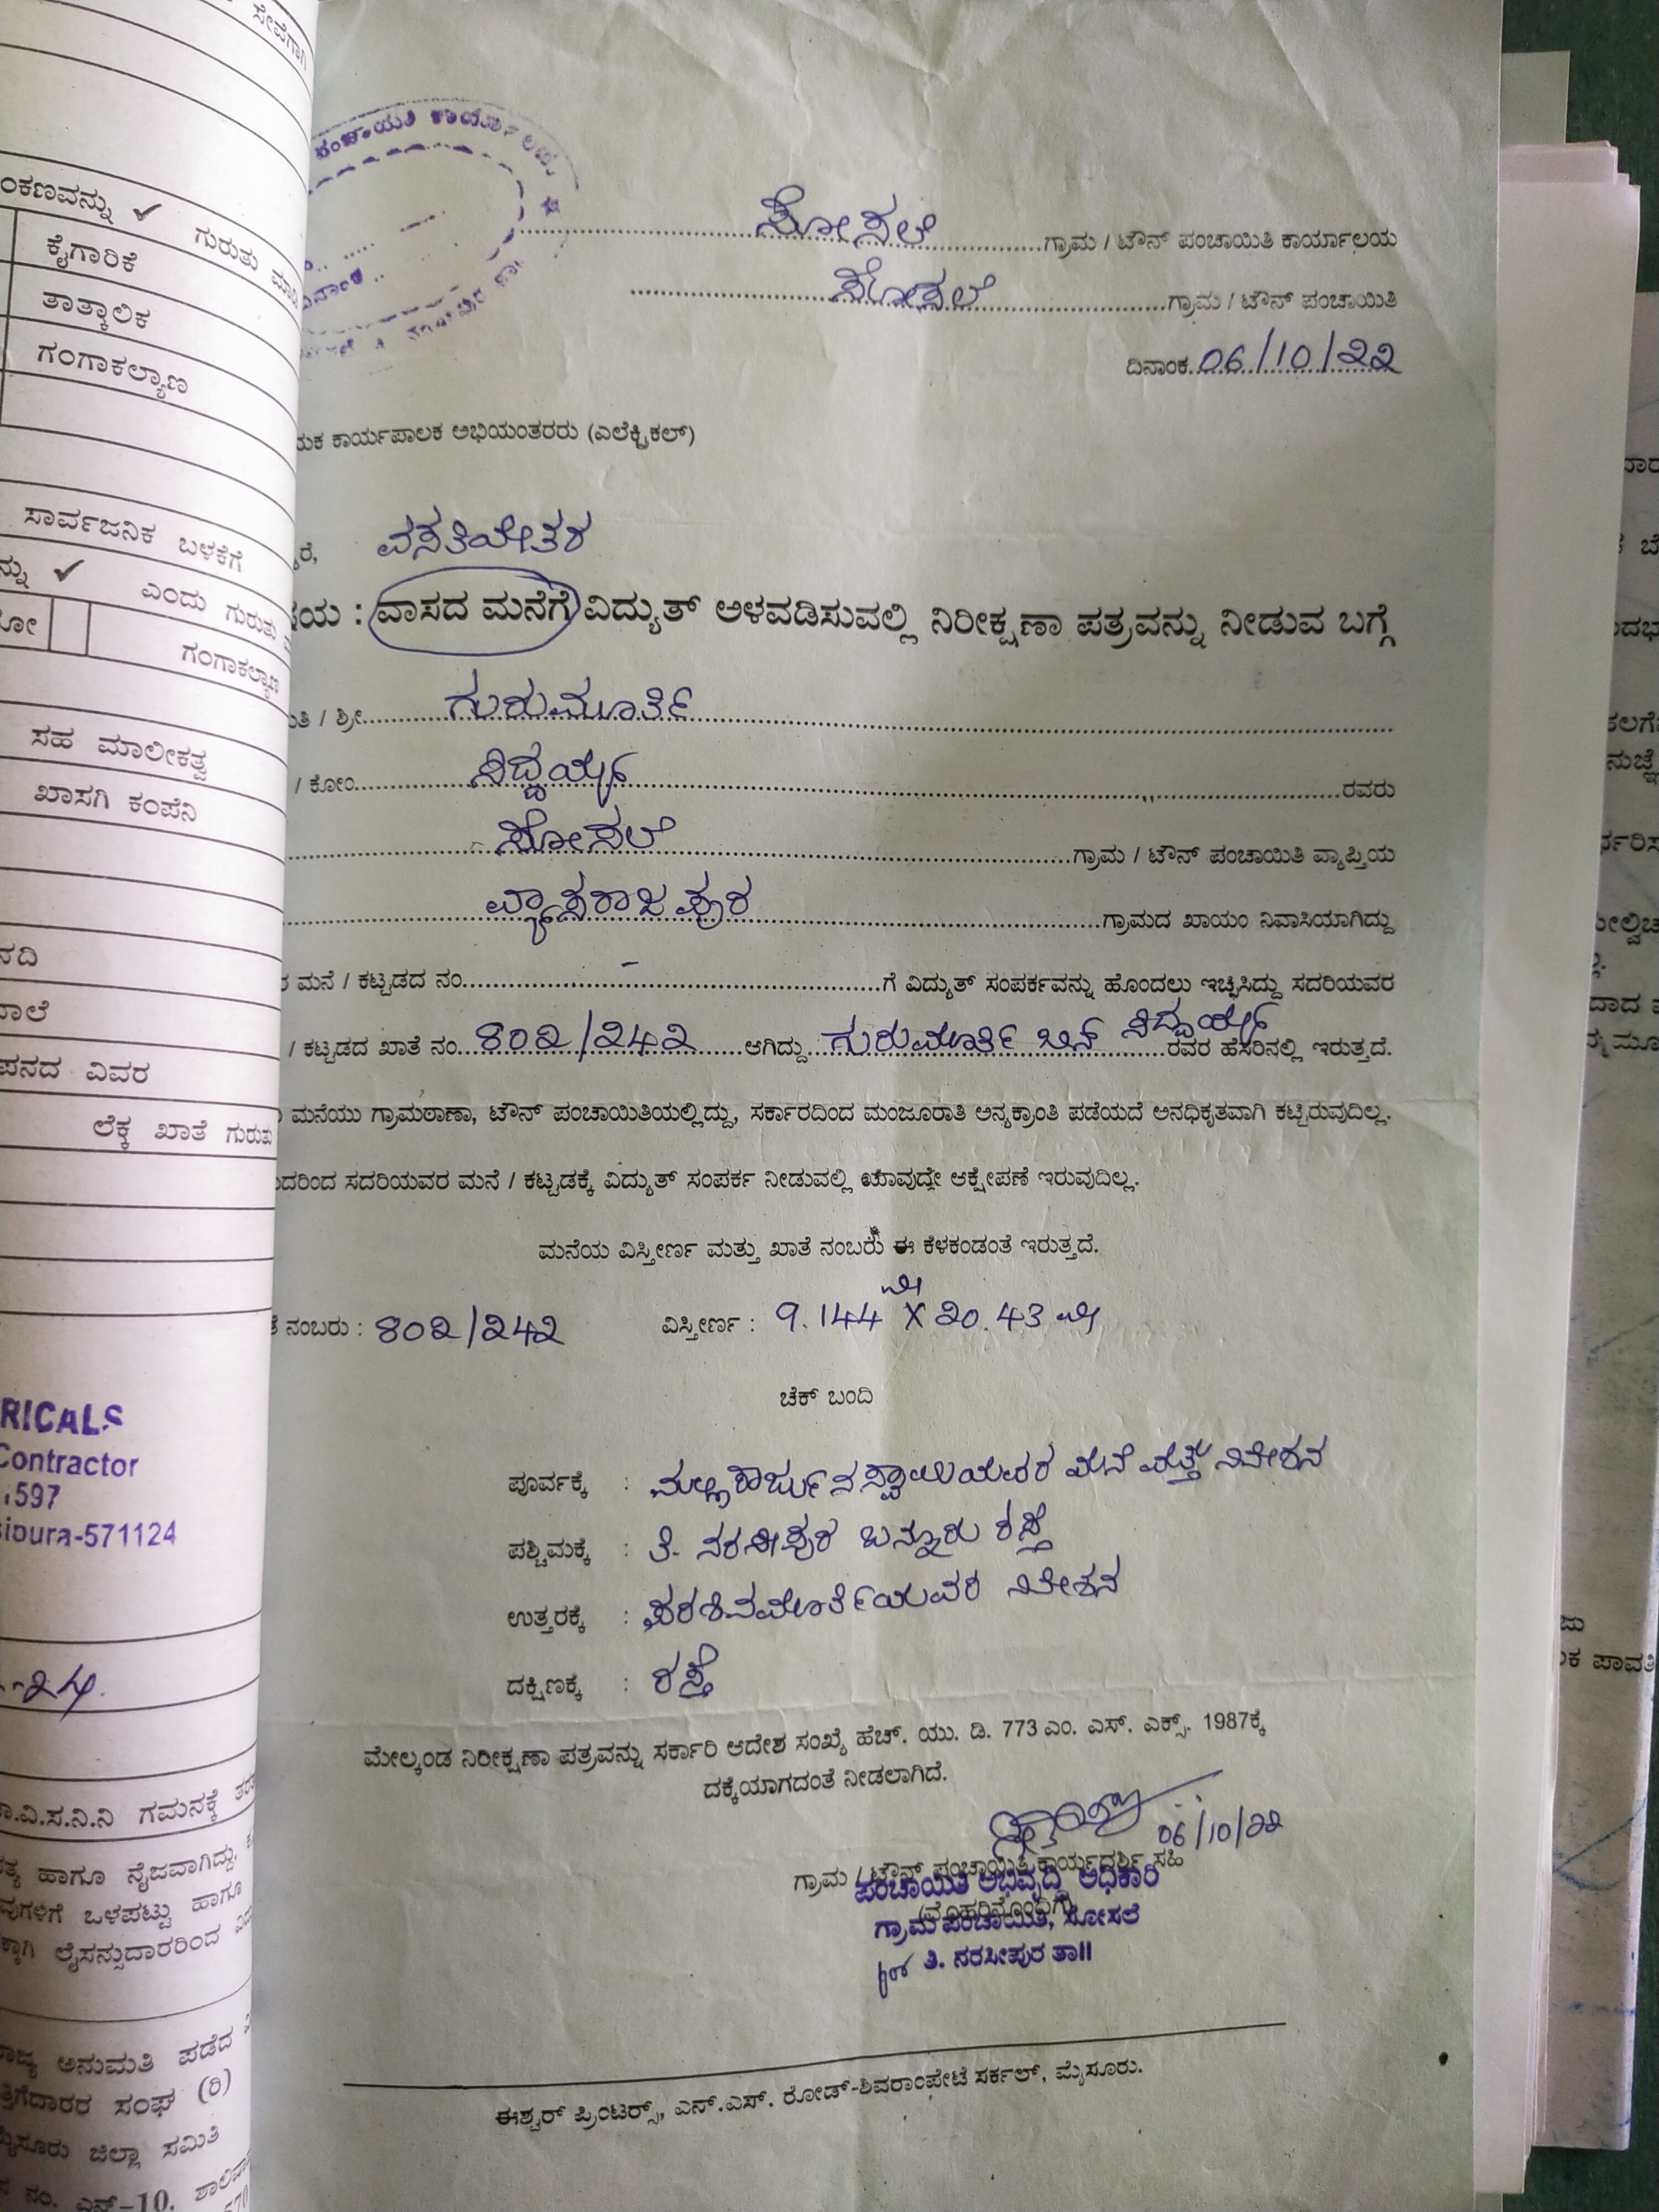 ಸೇವೆಗಾಗಿ
ಂಕಣವನ್ನು ✓ ಗುರುತು ಮಾಡಿ
ಕೈಗಾರಿಕೆ
ತಾತ್ಕಾಲಿಕ
ಗಂಗಾಕಲ್ಯಾಣ
ಸಾರ್ವಜನಿಕ ಬಳಕೆಗೆ
ನ್ನು ✓ ಎಂದು ಗುರುತು
ಗಂಗಾಕಲ್ಯಾಣ
ಸಹ ಮಾಲೀಕತ್ವ
ಖಾಸಗಿ ಕಂಪೆನಿ
ನದಿ
ಪನದ ವಿವರ
ಲೆಕ್ಕ ಖಾತೆ ಗುರುತು
RICALS
Contractor
597
sipura-571124
-24.
ವಿ.ಸ.ನಿ.ನಿ ಗಮನಕ್ಕೆ
ಹಾಗೂ ನೈಜವಾಗಿದ್ದು,
ವುಗಳಿಗೆ ಒಳಪಟ್ಟು ಹಾಗೂ
ಕ್ಕಾಗಿ ಲೈಸನ್ಸುದಾರರಿಂದ
ರಾಜ್ಯ ಅನುಮತಿ ಪಡೆದ
ತ್ತಿಗೆದಾರರ ಸಂಘ (ರಿ)
ಮೈಸೂರು ಜಿಲ್ಲಾ ಸಮಿತಿ
ನಂ. ಎನ್-10,
ಪಂಚಾಯಿತಿ ಕಾರ್ಯಾಲಯ
ಸೋಸಲೆ ಗ್ರಾಮ / ಟೌನ್ ಪಂಚಾಯಿತಿ ಕಾರ್ಯಾಲಯ
ಸೋಸಲೆ ಗ್ರಾಮ / ಟೌನ್ ಪಂಚಾಯಿತಿ
ದಿನಾಂಕ 06/10/22
ಯಕ ಕಾರ್ಯಪಾಲಕ ಅಭಿಯಂತರರು (ಎಲೆಕ್ಟ್ರಿಕಲ್)
ರೆ, ವಸತಿಯೇತರ
ಷಯ : ವಾಸದ ಮನೆಗೆ ವಿದ್ಯುತ್ ಅಳವಡಿಸುವಲ್ಲಿ ನಿರೀಕ್ಷಣಾ ಪತ್ರವನ್ನು ನೀಡುವ ಬಗ್ಗೆ
ತಿ / ಶ್ರೀ ಗುರುಮೂರ್ತಿ
/ ಕೋಂ ಸಿದ್ದಯ್ಯ ರವರು
ಸೋಸಲೆ ಗ್ರಾಮ / ಟೌನ್ ಪಂಚಾಯಿತಿ ವ್ಯಾಪ್ತಿಯ
ವ್ಯಾಸರಾಜಪುರ ಗ್ರಾಮದ ಖಾಯಂ ನಿವಾಸಿಯಾಗಿದ್ದು
ರ ಮನೆ / ಕಟ್ಟಡದ ನಂ. - ಗೆ ವಿದ್ಯುತ್ ಸಂಪರ್ಕವನ್ನು ಹೊಂದಲು ಇಚ್ಛಿಸಿದ್ದು ಸದರಿಯವರ
/ ಕಟ್ಟಡದ ಖಾತೆ ನಂ. 802/242 ಆಗಿದ್ದು ಗುರುಮೂರ್ತಿ ಬಿನ್ ಸಿದ್ದಯ್ಯ ರವರ ಹೆಸರಿನಲ್ಲಿ ಇರುತ್ತದೆ.
ಮನೆಯು ಗ್ರಾಮಠಾಣಾ, ಟೌನ್ ಪಂಚಾಯಿತಿಯಲ್ಲಿದ್ದು, ಸರ್ಕಾರದಿಂದ ಮಂಜೂರಾತಿ ಅನ್ಯಕ್ರಾಂತಿ ಪಡೆಯದೆ ಅನಧಿಕೃತವಾಗಿ ಕಟ್ಟಿರುವುದಿಲ್ಲ.
ದರಿಂದ ಸದರಿಯವರ ಮನೆ / ಕಟ್ಟಡಕ್ಕೆ ವಿದ್ಯುತ್ ಸಂಪರ್ಕ ನೀಡುವಲ್ಲಿ ಯಾವುದೇ ಆಕ್ಷೇಪಣೆ ಇರುವುದಿಲ್ಲ.
ಮನೆಯ ವಿಸ್ತೀರ್ಣ ಮತ್ತು ಖಾತೆ ನಂಬರು ಈ ಕೆಳಕಂಡಂತೆ ಇರುತ್ತದೆ.
ತೆ ನಂಬರು : 802/242 ವಿಸ್ತೀರ್ಣ : 9.144 ಮೀ X 20.43 ಮೀ
ಚೆಕ್ ಬಂದಿ
ಪೂರ್ವಕ್ಕೆ : ಮಲ್ಲಿಕಾರ್ಜುನಸ್ವಾಮಿಯವರ ಮನೆ ಮತ್ತು ನಿವೇಶನ
ಪಶ್ಚಿಮಕ್ಕೆ : ತಿ. ನರಸೀಪುರ ಬನ್ನೂರು ರಸ್ತೆ
ಉತ್ತರಕ್ಕೆ : ಪರಶಿವಮೂರ್ತಿಯವರ ನಿವೇಶನ
ದಕ್ಷಿಣಕ್ಕೆ : ರಸ್ತೆ
ಮೇಲ್ಕಂಡ ನಿರೀಕ್ಷಣಾ ಪತ್ರವನ್ನು ಸರ್ಕಾರಿ ಆದೇಶ ಸಂಖ್ಯೆ ಹೆಚ್. ಯು. ಡಿ. 773 ಎಂ. ಎಸ್. ಎಕ್ಸ್. 1987ಕ್ಕೆ
ದಕ್ಕೆಯಾಗದಂತೆ ನೀಡಲಾಗಿದೆ.
06/10/22
ಗ್ರಾಮ / ಟೌನ್ ಪಂಚಾಯಿತಿ ಕಾರ್ಯದರ್ಶಿ ಸಹಿ
ಪಂಚಾಯಿತಿ ಅಭಿವೃದ್ಧಿ ಅಧಿಕಾರಿ
(ಮೊಹರಿನೊಂದಿಗೆ)
ಗ್ರಾಮ ಪಂಚಾಯಿತಿ, ಸೋಸಲೆ
ತಿ. ನರಸೀಪುರ ತಾ||
ಈಶ್ವರ್ ಪ್ರಿಂಟರ್ಸ್, ಎನ್.ಎಸ್. ರೋಡ್-ಶಿವರಾಂಪೇಟೆ ಸರ್ಕಲ್, ಮೈಸೂರು.